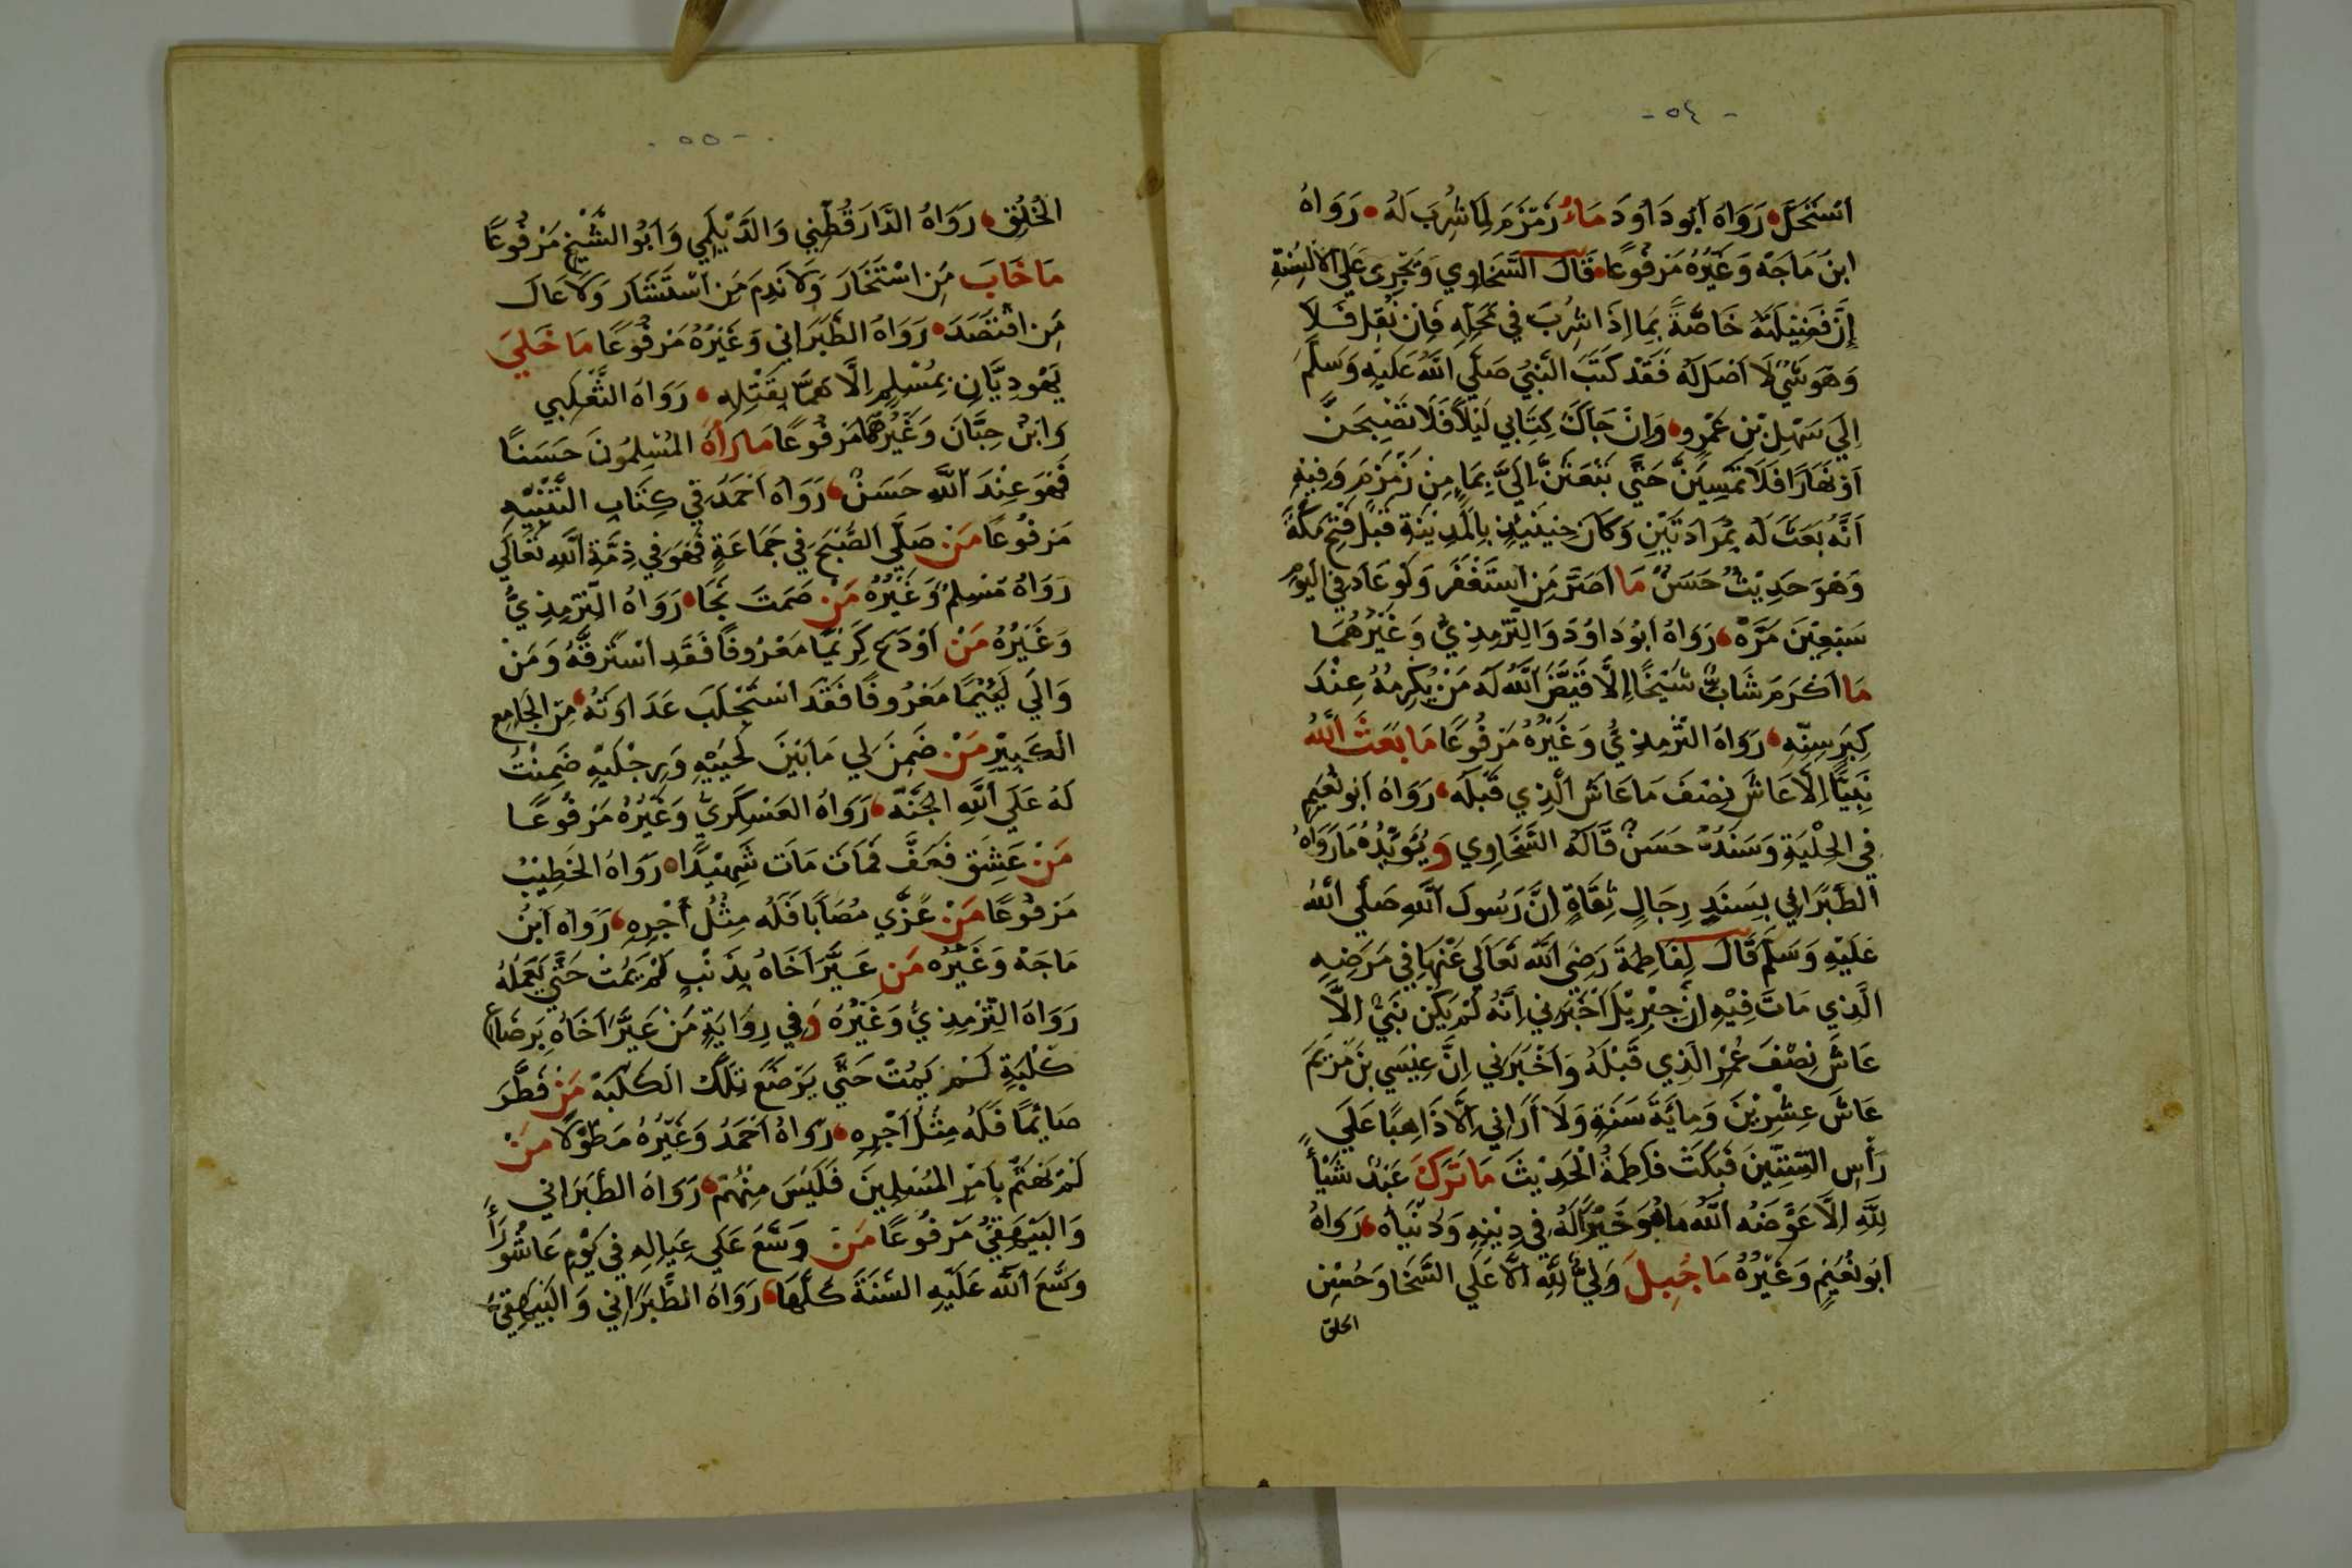 - ٥٤ -
اسْتَحَلَّ رَوَاهُ اَبُو دَاوُدَ مَاءُ زَمْزَمَ لِمَا شُرِبَ لَهُ رَوَاهُ
ابنُ مَاجَهْ وَغَيْرُهُ مَرْفُوعًا قَالَ السَّخَاوِي وَيَجْرِي عَلَى الْاَلْسِنَةِ
إِنَّ فَضِيْلَتَهُ خَاصَّةً بِمَا اِذَا شُرِبَ فِي مَحَلِّهِ فَاِن نُقِلَ فَلَا
وَهُوَ شَيْءٌ لَا اَصْلَ لَهُ فَقَدْ كَتَبَ النَّبِيُّ صَلَّى اللّٰهُ عَلَيْهِ وَسَلَّمَ
اِلَى سَهْلِ بْنِ عَمْرٍو وَاِنْ جَاكَ كِتَابِي لَيْلًا فَلَا تُصْبِحَنَّ
اَوْ نَهَارًا فَلَا تُمْسِيَنَّ حَتَّى تَبْعَثَنَّ اِلَيَّ بِمَاءٍ مِنْ زَمْزَمَ وَفِيْهِ
اَنَّهُ بَعَثَ لَهُ بِمَزَادَتَيْنِ وَكَانَ حِيْنَئِذٍ بِالْمَدِيْنَةِ قَبْلَ فَتْحِ مَكَّةَ
وَهُوَ حَدِيْثٌ حَسَنٌ مَا اَصَرَّ مَنِ اسْتَغْفَرَ وَلَوْ عَادَ فِي اليَوْمِ
سَبْعِيْنَ مَرَّةً رَوَاهُ اَبُو دَاوُدَ وَالتِّرْمِذِيُّ وَغَيْرُهُمَا
مَا اَكْرَمَ شَابٌّ شَيْخًا اِلَّا قَيَّضَ اللّٰهُ لَهُ مَنْ يُكْرِمُهُ عِنْدَ
كِبَرِ سِنِّهِ رَوَاهُ التِّرْمِذِيُّ وَغَيْرُهُ مَرْفُوعًا مَا بَعَثَ اللّٰهُ
نَبِيًّا اِلَّا عَاشَ نِصْفَ مَا عَاشَ الَّذِي قَبْلَهُ رَوَاهُ اَبُو نُعَيْمٍ
فِي الحِلْيَةِ وَسَنَدُهُ حَسَنٌ قَالَهُ السَّخَاوِي وَيُؤَيِّدُهُ مَا رَوَاهُ
الطَّبَرَانِي بِسَنَدٍ رِجَالٍ ثِقَاةٍ اِنَّ رَسُولَ اللّٰهِ صَلَّى اللّٰهُ
عَلَيْهِ وَسَلَّمَ قَالَ لِفَاطِمَةَ رَضِيَ اللّٰهُ تَعَالَى عَنْهَا فِي مَرَضِهِ
الَّذِي مَاتَ فِيْهِ اِنَّ جِبْرِيْلَ اَخْبَرَنِي اِنَّهُ لَمْ يَكُنْ نَبِيٌّ اِلَّا
عَاشَ نِصْفَ عُمْرِ الَّذِي قَبْلَهُ وَاَخْبَرَنِي اِنَّ عِيْسَى بْنَ مَرْيَمَ
عَاشَ عِشْرِيْنَ وَمِايَةَ سَنَةٍ وَلَا اَرَانِي اِلَّا ذَاهِبًا عَلَى
رَأْسِ السِّتِّيْنَ فَبَكَتْ فَاطِمَةُ الْحَدِيْثَ مَا تَرَكَ عَبْدٌ شَيْأً
لِلّٰهِ اِلَّا عَوَّضَهُ اللّٰهُ مَا هُوَ خَيْرٌ لَهُ فِي دِيْنِهِ وَدُنْيَاهُ رَوَاهُ
اَبُو نُعَيْمٍ وَغَيْرُهُ مَا جُبِلَ وَلِيٌّ لِلّٰهِ اِلَّا عَلَى السَّخَا وَحُسْنِ
الخلق
- ٥٥ -
الْخُلُقِ رَوَاهُ الدَّارَقُطْنِي وَالدَّيْلَمِي وَاَبُو الشَّيْخِ مَرْفُوعًا
مَا خَابَ مَنِ اسْتَخَارَ وَلَا نَدِمَ مَنِ اسْتَشَارَ وَلَا عَالَ
مَنِ اقْتَصَدَ رَوَاهُ الطَّبَرَانِي وَغَيْرُهُ مَرْفُوعًا مَا خَلِيَ
يَهُودِيَّانِ بِمُسْلِمٍ اِلَّا هَمَّا بِقَتْلِهِ رَوَاهُ الثَّعْلَبِي
وَابْنُ حِبَّانَ وَغَيْرُهُمَا مَرْفُوعًا مَا رَاَهُ المُسْلِمُونَ حَسَنًا
فَهُوَ عِنْدَ اللّٰهِ حَسَنٌ رَوَاهُ اَحْمَدُ فِي كِتَابِ التَّنْبِيْهِ
مَرْفُوعًا مَنْ صَلَّى الصُّبْحَ فِي جَمَاعَةٍ فَهُوَ فِي ذِمَّةِ اللّٰهِ تَعَالَى
رَوَاهُ مُسْلِمٌ وَغَيْرُهُ مَنْ صَمَتَ نَجَا رَوَاهُ التِّرْمِذِيُّ
وَغَيْرُهُ مَنْ اَوْدَعَ كَرِيْمًا مَعْرُوفًا فَقَدِ اسْتَرَقَّهُ وَمَنْ
وَالَى لَئِيْمًا مَعْرُوفًا فَقَدِ اسْتَجْلَبَ عَدَاوَتَهُ مِنَ الجَامِعِ
الكَبِيْرِ مَنْ ضَمِنَ لِي مَا بَيْنَ لَحْيَيْهِ وَرِجْلَيْهِ ضَمِنْتُ
لَهُ عَلَى اللّٰهِ الجَنَّةَ رَوَاهُ العَسْكَرِيُّ وَغَيْرُهُ مَرْفُوعًا
مَنْ عَشِقَ فَعَفَّ فَمَاتَ مَاتَ شَهِيْدًا رَوَاهُ الخَطِيْبُ
مَرْفُوعًا مَنْ عَزَّى مُصَابًا فَلَهُ مِثْلُ أَجْرِهِ رَوَاهُ ابْنُ
مَاجَهْ وَغَيْرُهُ مَنْ عَيَّرَ اَخَاهُ بِذَنْبٍ لَمْ يَمُتْ حَتَّى يَعْمَلَهُ
رَوَاهُ التِّرْمِذِيُّ وَغَيْرُهُ وَفِي رِوَايَةٍ مَنْ عَيَّرَ اَخَاهُ بِرَضَاعِ
كَلْبَةٍ لَمْ يَمُتْ حَتَّى يَرْضَعَ تِلْكَ الكَلْبَةَ مَنْ فَطَّرَ
صَايِمًا فَلَهُ مِثْلُ اَجْرِهِ رَوَاهُ اَحْمَدُ وَغَيْرُهُ مُطَوَّلًا مَنْ
لَمْ يَهْتَمَّ بِاَمْرِ المُسْلِمِيْنَ فَلَيْسَ مِنْهُمْ رَوَاهُ الطَّبَرَانِي
وَالبَيْهَقِيُّ مَرْفُوعًا مَنْ وَسَّعَ عَلَى عِيَالِهِ فِي يَوْمِ عَاشُورَاءَ
وَسَّعَ اللّٰهُ عَلَيْهِ السَّنَةَ كُلَّهَا رَوَاهُ الطَّبَرَانِي وَالبَيْهَقِيُّ